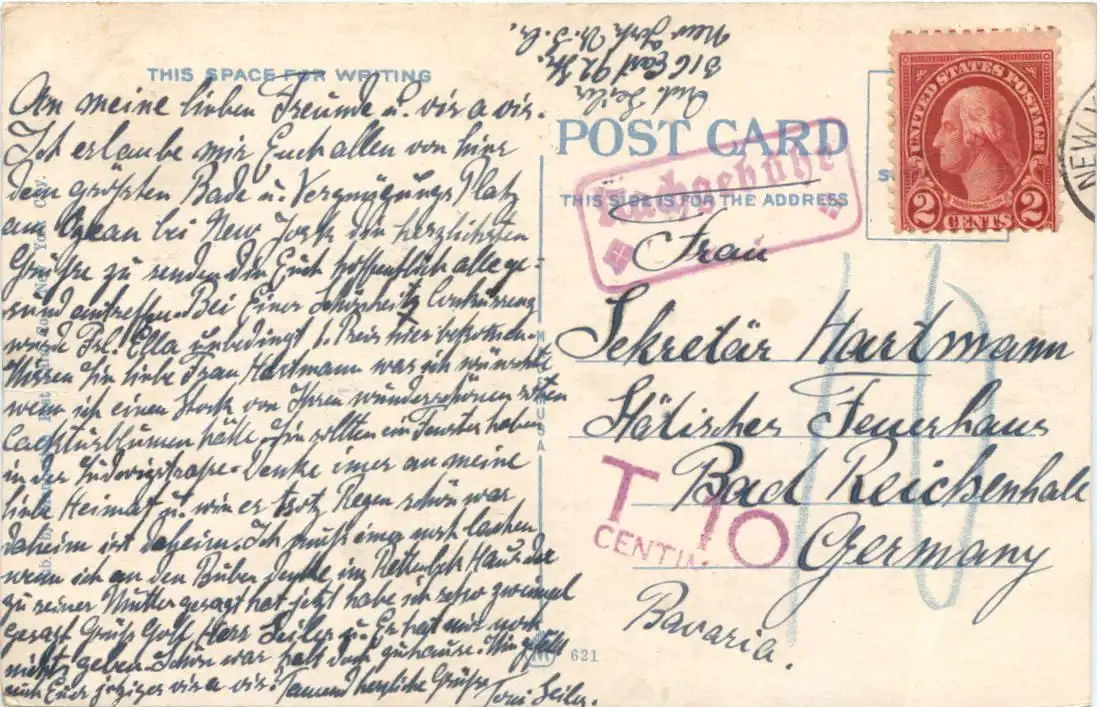 316 East 92 Str.
New York U.S.A.
THIS SPACE FOR WRITING
An meine lieben Freunde u. vis a vis.
Ich erlaube mir Euch allen von hier
dem größten Bade u. Vergnügungs Platz
am Ozean bei New York die herzlichsten
Grüße zu senden die Euch hoffentlich alle ge-
sund antreffen. Bei Einer Schönheitz Conkurrenz
würde Frl. Ella unbedingt 1. Preis hier bekommen.
Wissen Sie liebe Frau Hartmann was ich wünschte
wenn ich einen Stock von Ihren wunderschönen roten
hätte. Sie sollten ein Fenster haben
in der Ludwigstraße. Denke imer an meine
liebe Heimat u. wie es trotz Regen schön war
daheim ist daheim. Ich muß imer noch lachen
wenn ich an den Buben denke im Haus der
zu seiner Mutter gesagt hat jetzt habe ich schon zweimal
gesagt Grüß Gott Herr Seiler u. Er hat mir noch
nichts geben. Schön war halt doch zuhause. Wie gefällt
auch Euer jetziges vis a vis. Tausend herzliche Grüße
Toni Seiler.
POST CARD
THIS SIDE IS FOR THE ADDRESS
Nachgebühr
UNITED STATES POSTAGE
WASHINGTON
2 CENTS 2
NEW
Frau
Sekretär Hartmann
Städtisches Feuerhaus
Bad Reichenhall
Germany
Bavaria.
10
T 10
CENTIM
MADE IN USA
621